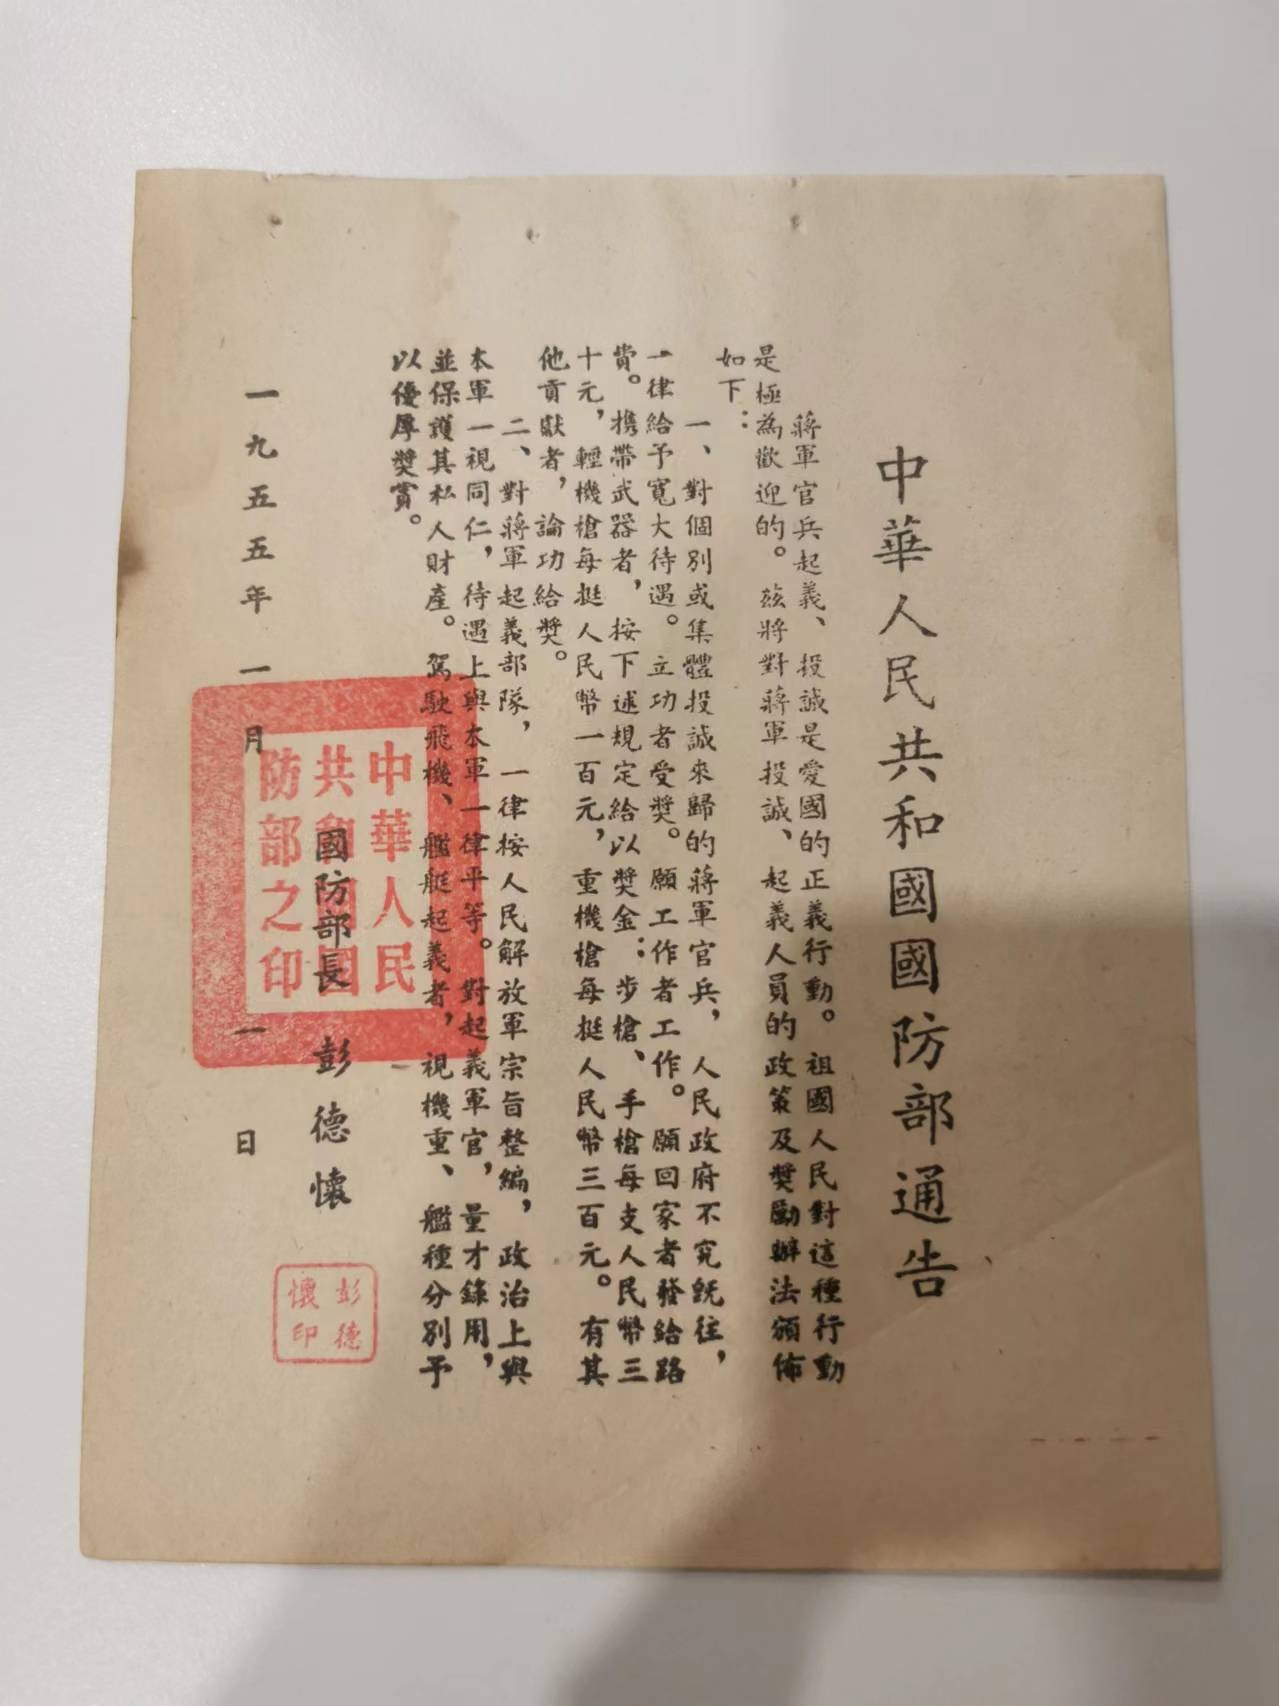 中華人民共和國國防部通告
蔣軍官兵起義、投誠是愛國的正義行動。祖國人民對這種行動
是極為歡迎的。茲將對蔣軍投誠、起義人員的政策及獎勵辦法頒佈
如下：
一、對個別或集體投誠來歸的蔣軍官兵，人民政府不究既往，
一律給予寬大待遇。立功者受獎。願工作者工作。願回家者發給路
費。携帶武器者，按下述規定給以獎金：步槍、手槍每支人民幣三
十元，輕機槍每挺人民幣一百元，重機槍每挺人民幣三百元。有其
他貢獻者，論功給獎。
二、對蔣軍起義部隊，一律按人民解放軍宗旨整編，政治上與
本軍一視同仁，待遇上與本軍一律平等。對起義軍官，量才錄用，
並保護其私人財產。駕駛飛機、艦艇起義者，視機重、艦種分別予
以優厚獎賞。
國防部長 彭德懷
彭德
懷印
一九五五年一月一日
中華人民
共和國國
防部之印